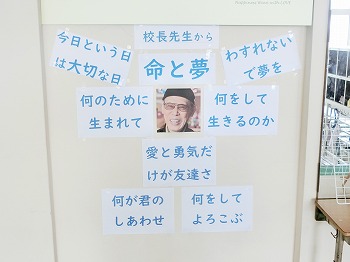 校長先生から
今日という日
は大切な日
命と夢
わすれない
で夢を
何のために
生まれて
何をして
生きるのか
愛と勇気だ
けが友達さ
何が君の
しあわせ
何をして
よろこぶ